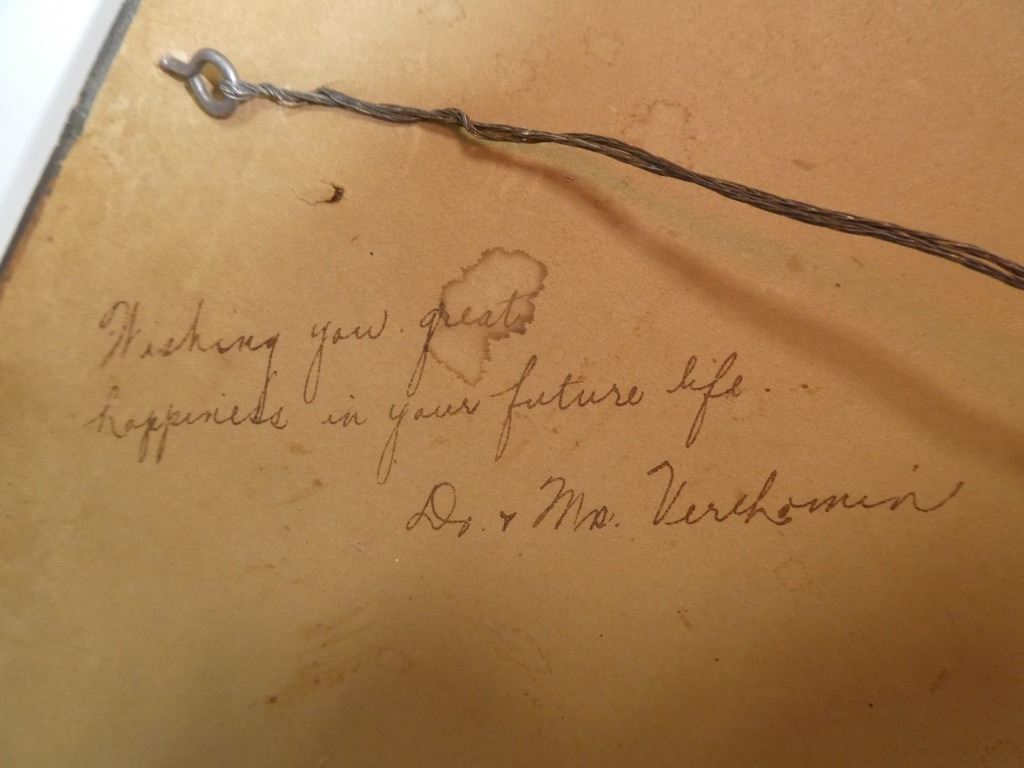 Wishing you great
happiness in your future life.
Dr. & Mrs. Verchomin